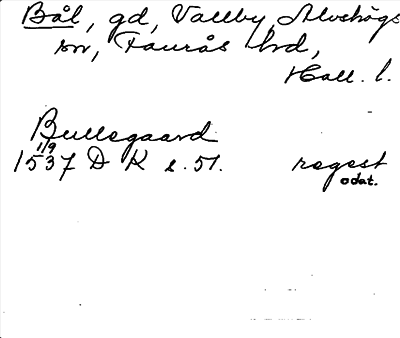 Bål, gd, Vallby, Alvshögs
sn, Faurås hd,
Hall. l.
Bullsgaard
1/9
1537 D K s. 51. regest
odat.